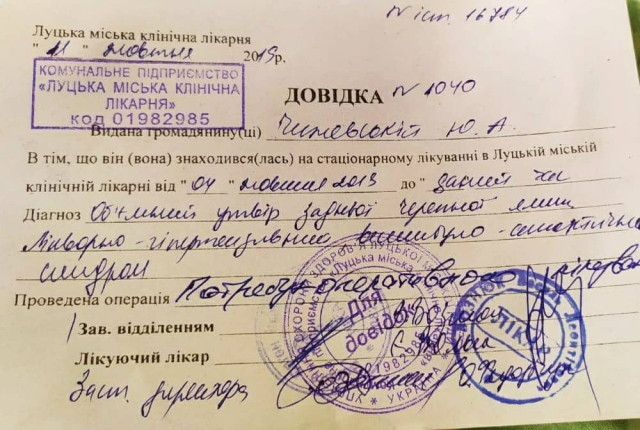 N іст. 16784
Луцька міська клінічна лікарня
"11" жовтня 2019р.
КОМУНАЛЬНЕ ПІДПРИЄМСТВО
«ЛУЦЬКА МІСЬКА КЛІНІЧНА
ЛІКАРНЯ»
код 01982985
ДОВІДКА N 1040
Видана громадянину(ці) Чижевській Ю. А.
В тім, що він (вона) знаходився(лась) на стаціонарному лікуванні в Луцькій міській
клінічній лікарні від "04" жовтня 2019 до "
Діагноз Об'ємний утвір задньої черепної ямки
Лікворно-гіпертензивний
синдром
Проведена операція Потребує оперативного
Зав. відділенням
Лікуючий лікар
Заст. директора
Для
довідок
01982985
УКРАЇНА
ЛІКАР